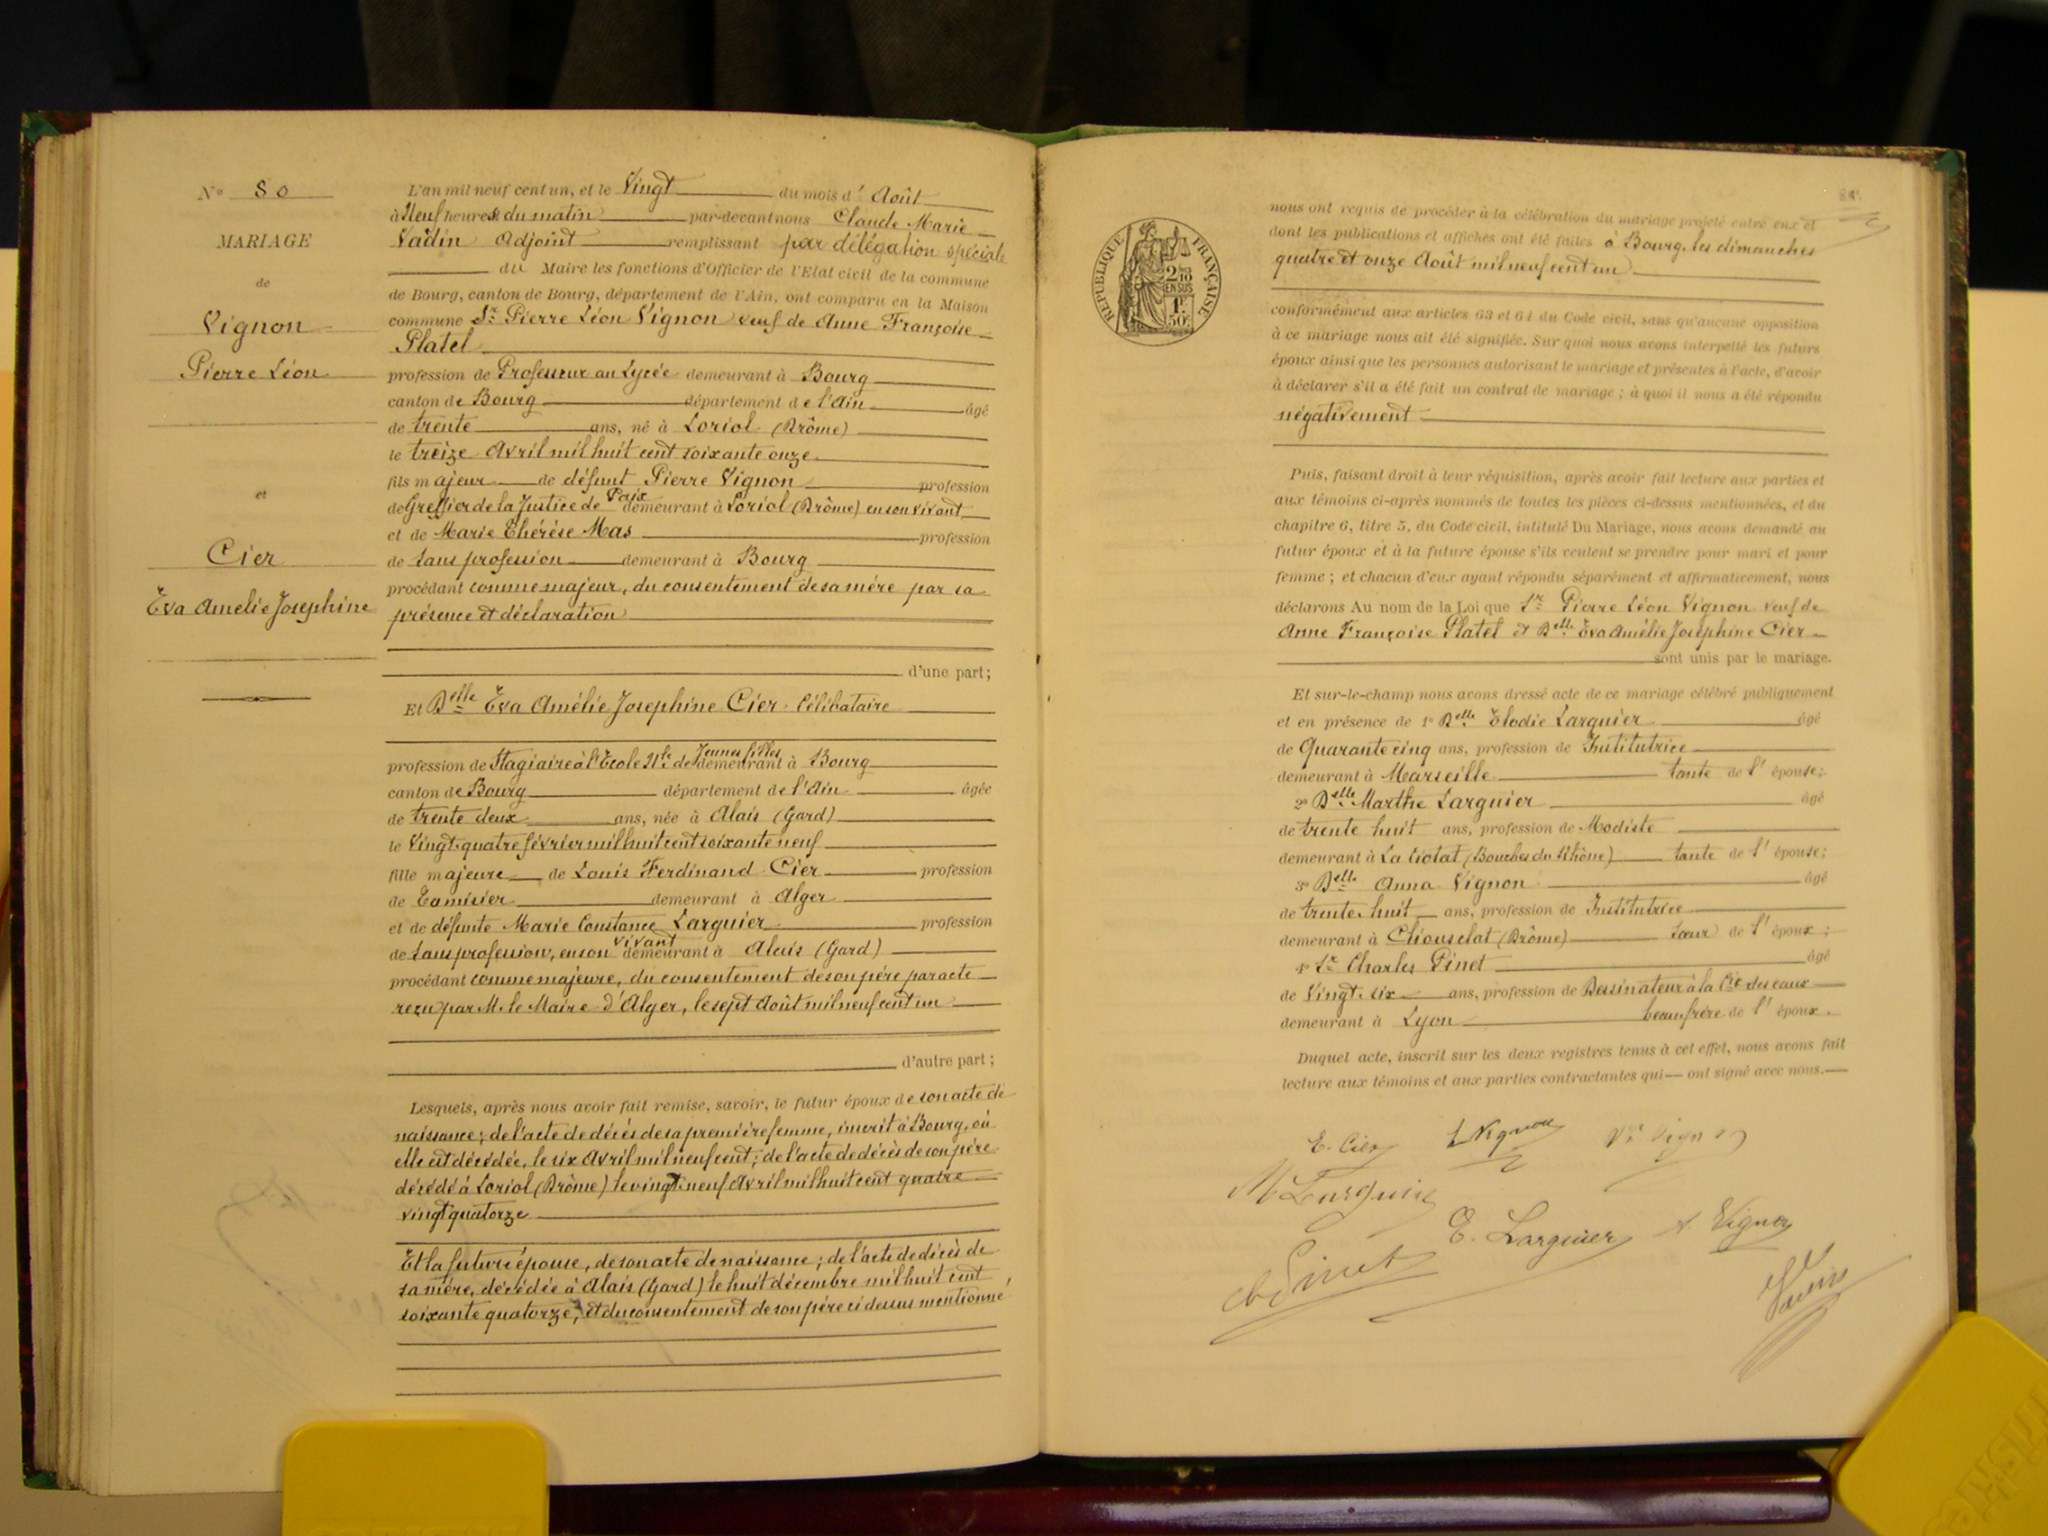 N° 80
MARIAGE
de
Vignon
Pierre Léon
et
Cier
Eva Amelie Josephine
L'an mil neuf cent un, et le Vingt du mois d' Août
à Neuf heures du matin par-devant nous Claude Marie
Vadin Adjoint remplissant par délégation spéciale
du Maire les fonctions d'Officier de l'Etat civil de la commune
de Bourg, canton de Bourg, département de l'Ain, ont comparu en la Maison
commune Sr Pierre Léon Vignon veuf de Anne Françoise
Platel
profession de Professeur au Lycée demeurant à Bourg
canton de Bourg département de l'Ain âgé
de trente ans, né à Loriol (Drôme)
le treize Avril mil huit cent soixante onze
fils majeur de défunt Pierre Vignon profession
de Greffier de la Justice de Paix demeurant à Loriol (Drôme) en son vivant
et de Marie Thérèse Mas profession
de sans profession demeurant à Bourg
procédant comme majeur, du consentement de sa mère par sa
présence et déclaration
d'une part;
Et Delle Eva Amélie Josephine Cier célibataire
profession de Stagiaire à l'Ecole Nle de Jeunes filles demeurant à Bourg
canton de Bourg département de l'Ain âgée
de trente deux ans, née à Alais (Gard)
le Vingt quatre février mil huit cent soixante neuf
fille majeure de Louis Ferdinand Cier profession
de Tamisier demeurant à Alger
et de défunte Marie Constance Larguier profession
de sans profession, en son vivant demeurant à Alais (Gard)
procédant comme majeure, du consentement de son père par acte
reçu par M. le Maire d'Alger, le sept Août mil neuf cent un
d'autre part;
Lesquels, après nous avoir fait remise, savoir, le futur époux de son acte de
naissance; de l'acte de décès de sa première femme, inscrit à Bourg, où
elle est décédée, le six Avril mil neuf cent; de l'acte de décès de son père
décédé à Loriol (Drôme) le vingt neuf Avril mil huit cent quatre
vingt quatorze
Et la future épouse, de son acte de naissance; de l'acte de décès de
sa mère, décédée à Alais (Gard) le huit décembre mil huit cent
soixante quatorze, et du consentement de son père ci dessus mentionné
RÉPUBLIQUE FRANÇAISE
2/10
EN SUS
1F
50c
nous ont requis de procéder à la célébration du mariage projeté entre eux et
dont les publications et affiches ont été faites à Bourg, les dimanches
quatre et onze Août mil neuf cent un
conformément aux articles 63 et 64 du Code civil, sans qu'aucune opposition
à ce mariage nous ait été signifiée. Sur quoi nous avons interpellé les futurs
époux ainsi que les personnes autorisant le mariage et présentes à l'acte, d'avoir
à déclarer s'il a été fait un contrat de mariage; à quoi il nous a été répondu
négativement
Puis, faisant droit à leur réquisition, après avoir fait lecture aux parties et
aux témoins ci-après nommés de toutes les pièces ci-dessus mentionnées, et du
chapitre 6, titre 5, du Code civil, intitulé Du Mariage, nous avons demandé au
futur époux et à la future épouse s'ils veulent se prendre pour mari et pour
femme; et chacun d'eux ayant répondu séparément et affirmativement, nous
déclarons Au nom de la Loi que Sr Pierre Léon Vignon veuf de
Anne Françoise Platel et Delle Eva Amélie Joséphine Cier
sont unis par le mariage.
Et sur-le-champ nous avons dressé acte de ce mariage célébré publiquement
et en présence de 1° Delle Elodie Larguier âgé
de Quarante cinq ans, profession de Institutrice
demeurant à Marseille tante de l' épouse;
2° Delle Marthe Larguier âgé
de trente huit ans, profession de Modiste
demeurant à La Ciotat (Bouches du Rhône) tante de l' épouse;
3° Delle Anna Vignon âgé
de trente huit ans, profession de Institutrice
demeurant à Cliousclat (Drôme) sœur de l' époux;
4° Sr Charles Pinet âgé
de Vingt six ans, profession de Dessinateur à la Cie des eaux
demeurant à Lyon beau frère de l' époux.
Duquel acte, inscrit sur les deux registres tenus à cet effet, nous avons fait
lecture aux témoins et aux parties contractantes qui ont signé avec nous.
E. Cier L Vignon Ve Vignon
M Larguier
E. Larguier A. Vignon
Ch Pinet
Vadin